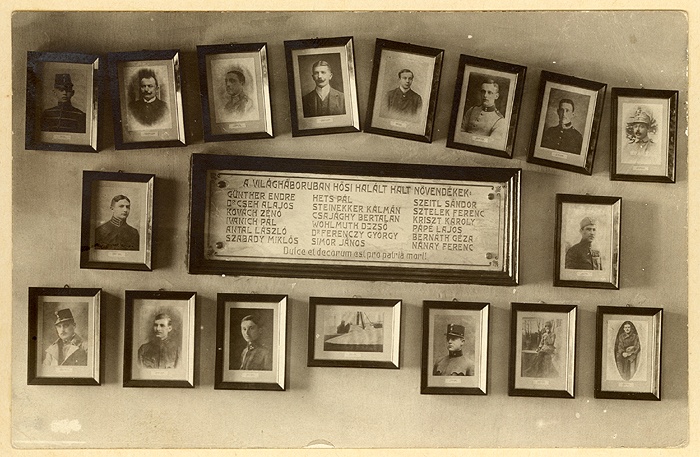 A VILÁGHÁBORUBAN HŐSI HALÁLT HALT NÖVENDÉKEK:
GÜNTHER ENDRE
Dr CSEH ALAJOS
KOVÁCH ZENÓ
IVÁNICH PÁL
ANTAL LÁSZLÓ
SZABADY MIKLÓS
HETS PÁL
STEINEKKER KÁLMÁN
CSAJÁGHY BERTALAN
WOHLMUTH DEZSŐ
Dr FERENCZY GYÖRGY
SIMOR JÁNOS
SZEITL SÁNDOR
SZTELEK FERENC
KRISZT KÁROLY
PÁPE LAJOS
BERNÁTH GÉZA
NÁNAY FERENC
Dulce et decorum est pro patria mori!